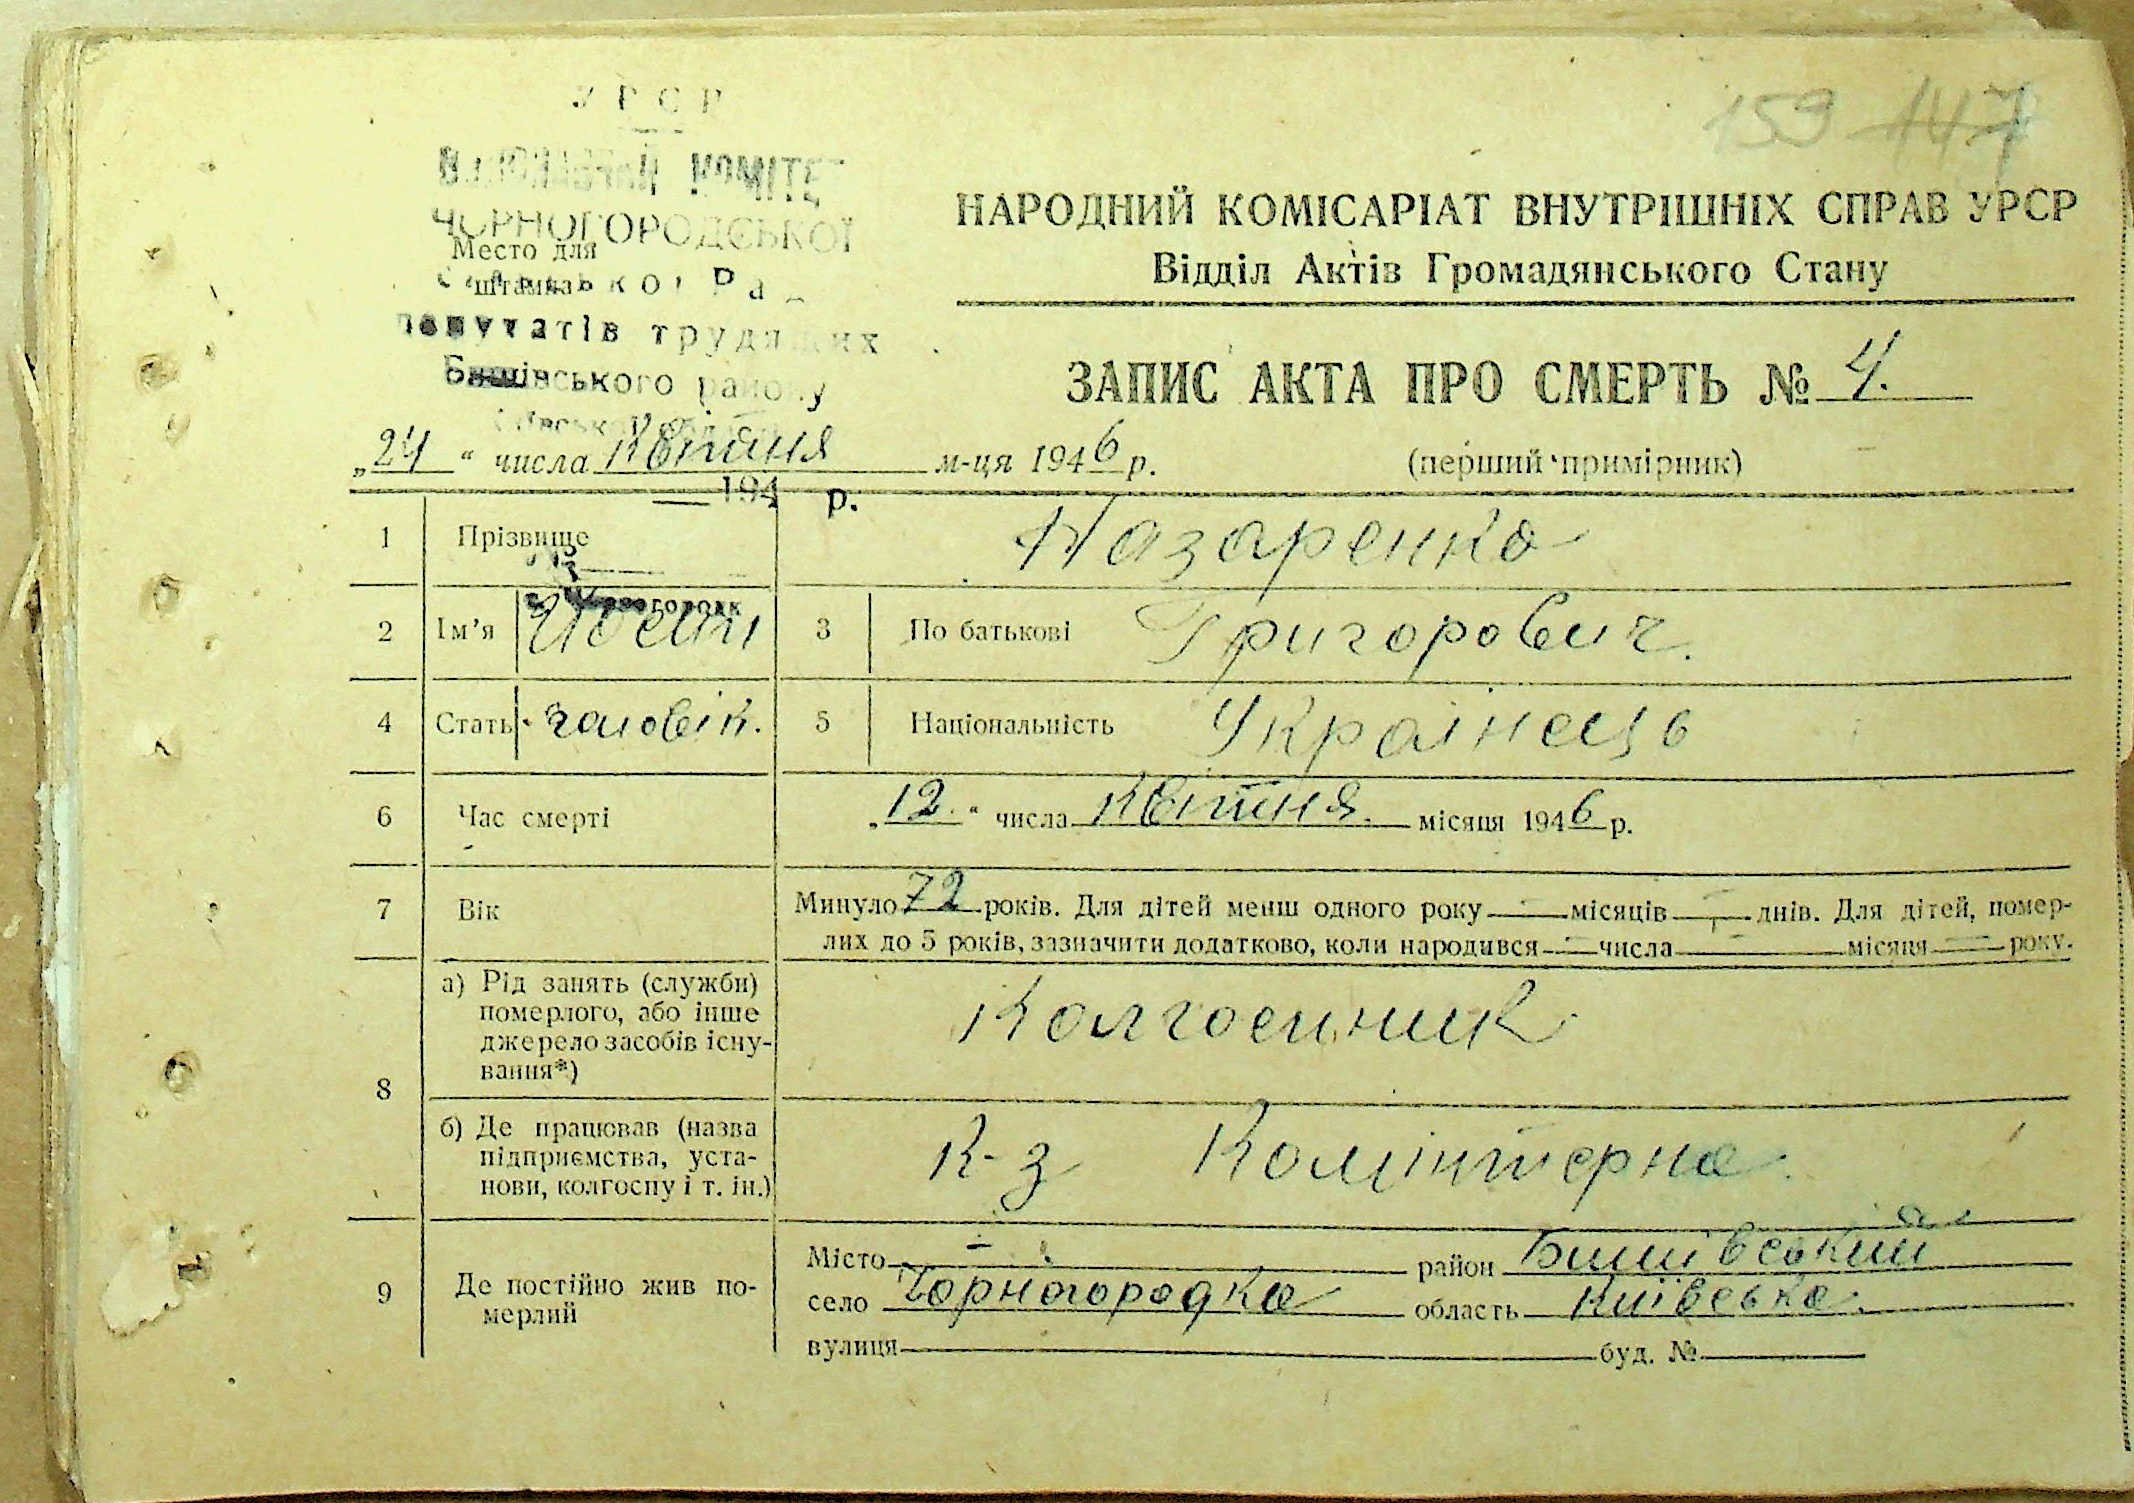 УРСР
159 147
ВИКОНАВЧИЙ КОМІТЕТ
ЧОРНОГОРОДСЬКОЇ
Место для
штампа
депутатів трудящих
Бишівського району
НАРОДНИЙ КОМІСАРІАТ ВНУТРІШНІХ СПРАВ УРСР
Відділ Актів Громадянського Стану
ЗАПИС АКТА ПРО СМЕРТЬ № 4.
„24“ числа Квітня м-ця 1946 р.
(перший примірник)
194 р.
1 Прізвище Назаренко
2 Ім’я 3 По батькові Григорович.
4 Стать чоловік. 5 Національність Українець
6 Час смерті „12.“ числа Квітня. місяця 1946 р.
7 Вік Минуло 72 років. Для дітей менш одного року — місяців — днів. Для дітей, помер-
лих до 5 років, зазначити додатково, коли народився — числа — місяця — року.
8 а) Рід занять (служби)
померлого, або інше
джерело засобів існу-
вання*)
Колгоспник
б) Де працював (назва
підприємства, уста-
нови, колгоспу і т. ін.)
К-з Комінтерна.
9 Де постійно жив по-
мерлий
Місто — район Бишівський
село Чорногородка область Київська.
вулиця буд. №